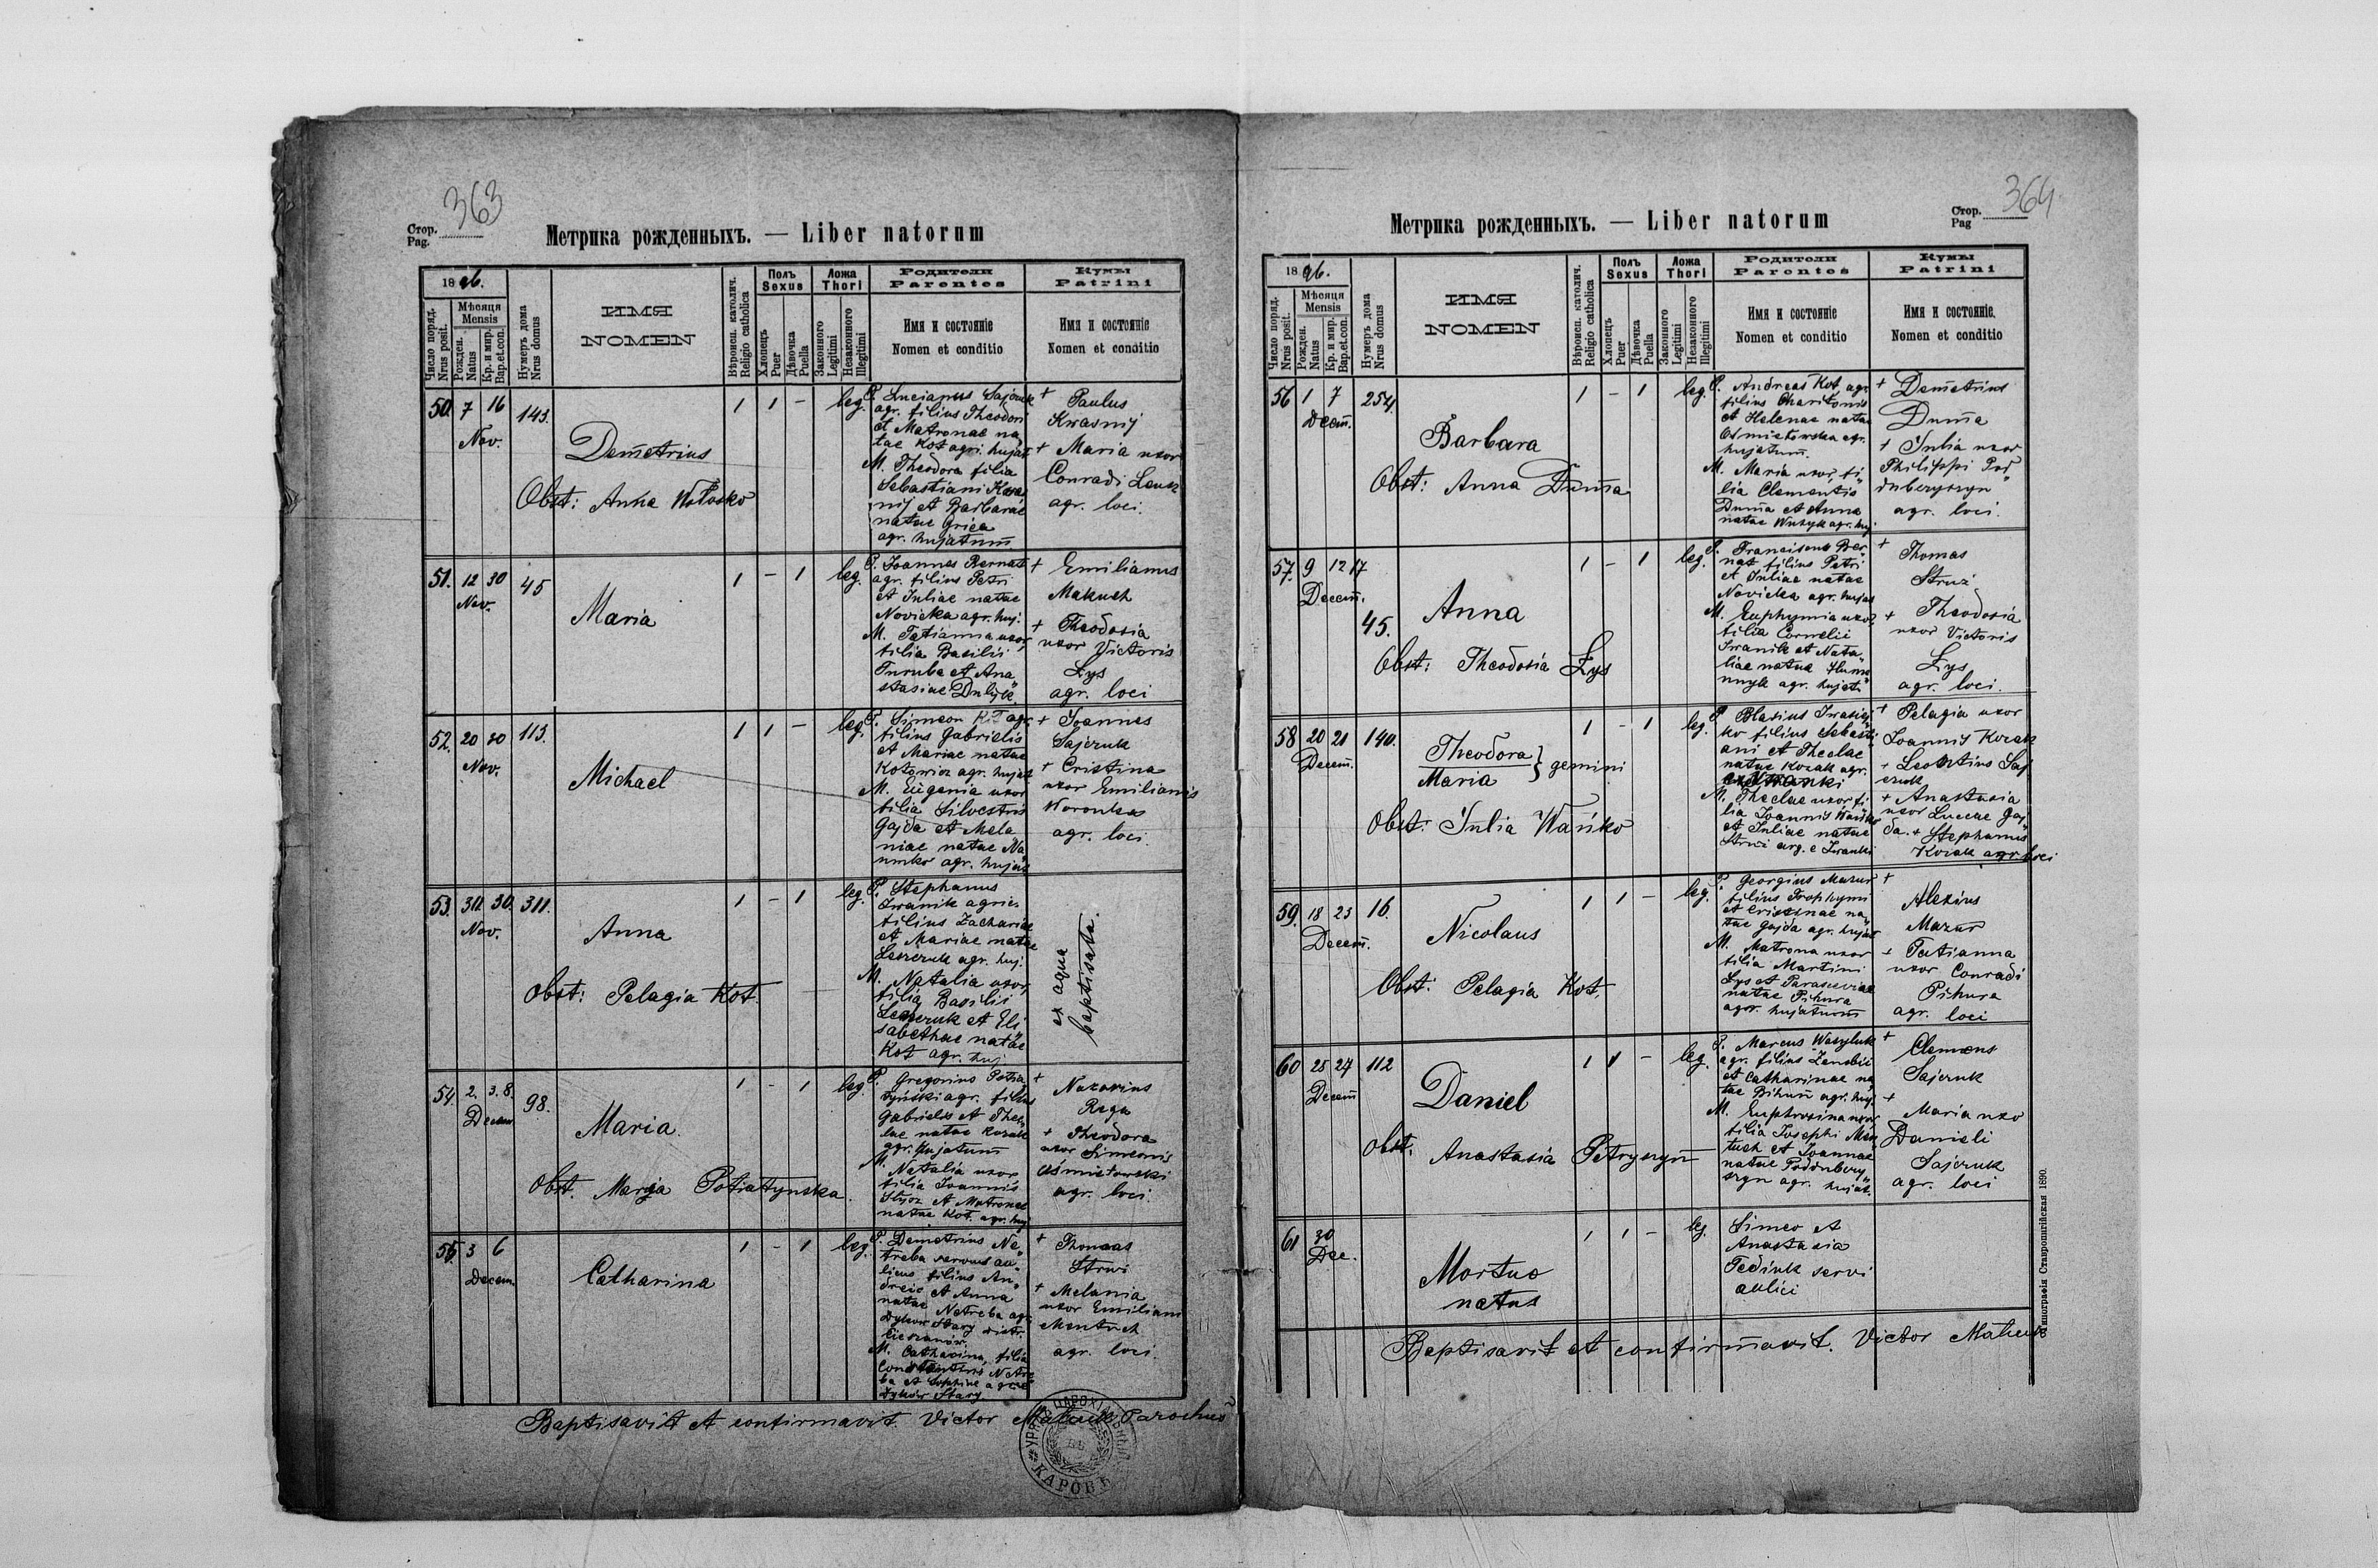 Стор. 363
Pag.
Метрика рожденныхъ. — Liber natorum
1896.
Число поряд. Nrus posit.
Мѣсяця Mensis
Рожден. Natus
Кр. и мир. Bap.et.con.
Нумеръ дома Nrus domus
ИМЯ
NOMEN
Вѣроисп. католич. Religio catholica
Полъ Sexus
Хлопецъ Puer
Дѣвочка Puella
Ложа Thori
Законного Legitimi
Незаконного Illegitimi
Родители
Parentes
Имя и состояніе
Nomen et conditio
Кумы
Patrini
Имя и состояніе
Nomen et conditio
50. 7 16 Nov. 143.
Demetrius
Obst: Anna Wołosko
1 1 - leg.
P. Lucianus Sajczuk
agr. filius Theodori
et Matronae na
tae Kot agri. hujat
M. Theodora filia
Sebastiani Kwas
nij et Barbarae
natae Grica
agr. hujatum
+ Paulus
Kwasnij
+ Maria uxor
Conradi Leuk
agr. loci.
51. 12 30 Nov. 45
Maria
1 - 1 leg.
P. Joannes Bernat
agr. filius Petri
et Juliae natae
Novicka agr. huj.
M. Tatianna uxor,
filia Basilii
Turuba et Ana
stasiae Dulyk.
+ Emilianus
Makuch
+ Theodosia
uxor Victoris
Łys
agr. loci
52. 20 30 Nov. 113.
Michael
1 1 - leg.
P. Simeon Kot agr.
filius Gabrielis
et Mariae natae
Kotowicz agr. hujat
M. Eugenia uxor
filia Silvestris
Gajda et Mela
niae natae Na
umko agr. hujat
+ Joannes
Sajczuk
+ Cristina
uxor Emilianis
agr. loci.
53. 30. Nov. 311.
Anna
Obst: Pelagia Kot.
1 - 1 leg.
P. Stephanus
Iwanik agric.
filius Zachariae
et Mariae natae
Leszczuk agr. huj.
M. Natalia uxor,
filia Basilii
Leszczuk et Eli
sabethae natae
Kot agr. huj
ex aqua
baptisata.
54. 2. 3.8. Decem 98.
Maria.
Obst. Marya Potiatynska.
1 - 1 leg.
P. Gregorius Potia
tyński agr. filius
Gabrielis et Thec
lae natae Kozak
agr. hujatum
M. Natalia uxor
filia Joannis
et Matronae
natae Kot. agr. huj
+ Nazarius
Rega
+ Theodora
uxor Simeonis
Ośmiłowski
agr. loci.
55 3 6 Decem.
Catharina
1 - 1 leg.
P. Demetrius Ne
treba servus au
licus filius An
dreie et Anna
natae Netreba agr.
Dyków Stary distr.
Cieszanów.
M. Catharina, filia
Constantinis Netre
ba et Sophiae agric
Dyków Stary
+ Thomas
Strus
+ Melania
uxor Emiliani
Mantuch
agr. loci.
Baptisavit et confirmavit Victor Matiuk Parochus
КАРОВѢ
Стор. 364.
Pag
Метрика рожденныхъ. — Liber natorum
1896.
Число поряд. Nrus posit.
Мѣсяця Mensis
Рожден. Natus
Кр. и мир. Bap.et.con.
Нумеръ дома Nrus domus
ИМЯ
NOMEN
Вѣроисп. католич. Religio catholica
Полъ Sexus
Хлопецъ Puer
Дѣвочка Puella
Ложа Thori
Законного Legitimi
Незаконного Illegitimi
Родители
Parentes
Имя и состояніе
Nomen et conditio
Кумы
Patrini
Имя и состояніе.
Nomen et conditio
56 1 7 Decem. 254.
Barbara
Obst: Anna Duma
1 - 1 leg.
P. Andreas Kot, agr.
filius Charitonis
et Helenae natae
Ośmiłowska agr.
hujatum.
M. Maria uxor, fi
lia Clementis
Duma et Anna
natae agr. huj.
+ Demetrius
Duma
+ Julia uxor
Philippi Pod
duberyszyn
agr. loci.
57. 9 12 17 Decem. 45.
Anna
Obst: Theodosia Łys
1 - 1 leg.
P. Franciscus Ber
nat filius Petri
et Juliae natae
Novicka agr. hujat
M. Euphymia uxor,
filia Cornelii
Iwanik et Nata
liae natae
agr. hujat.
+ Thomas
Struż
+ Theodosia
uxor Victoris
Łys
agr. loci.
58 20 21 Decem. 140.
Theodora
Maria } gemini
Obst: Julia Wańko
1 - 1 leg.
P. Blasius Iwasiej
ko filius Sebasti
ani et Theclae
natae Kozak agr.
M. Theclae uxor fi
lia Joannis Wańko
et Juliae natae
Strus arg. e Iwanki
+ Pelagia uxor
Joannis Kozak
+ Leontius Saj
czuk
+ Anastasia
uxor Lucae Gaj
da. + Stephanus
Kozak agr loci
59. 18 23 Decem. 16.
Nicolaus
Obst: Pelagia Kot.
1 1 - leg.
P. Georgius Mazur
filius Trophymi
et Cristinae na
tae Gajda agr. hujat
M. Matrona uxor
filia Martini
Łys et Parasceviae
natae Pihura
agr. hujatum
+ Alexius
Mazur
+ Tatianna
uxor Conradi
Pihura
agr. loci
60 25 27 Decem 112
Daniel
Obst. Anastasia Petryszyn
1 1 - leg.
P. Marcus Wasyluk
agr. filius Zenobii
et Catharinae na
tae Bihun agr. huj.
M. Euphrozina uxor
filia Josephi Man
tuch et Joannae
natae Podduberyi
szyn agr. hujat.
+ Clemens
Sajczuk
+ Maria uxo
Danieli
Sajczuk
agr. loci
61 30 Dec.
Mortuo
natus
1 1 - leg.
Simeo et
Anastasia
Fediuk servi
aulici
Baptisavit et confirmavit. Victor Matiuk
Типографія Ставропигійская 1890.